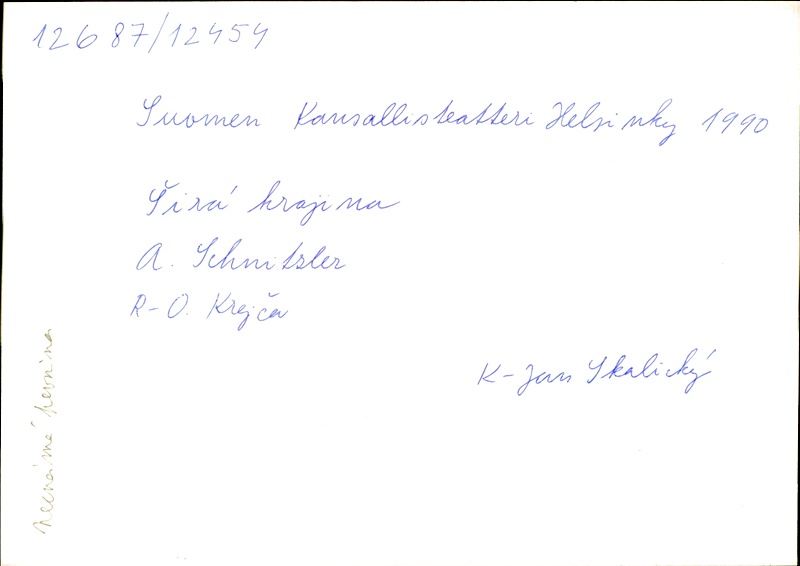 12687/12454
Suomen Kansallisteatteri Helsinky 1990
Širá krajina
A. Schnitzler
R-O. Krejča
K-Jan Skalický
neznámé pevnina